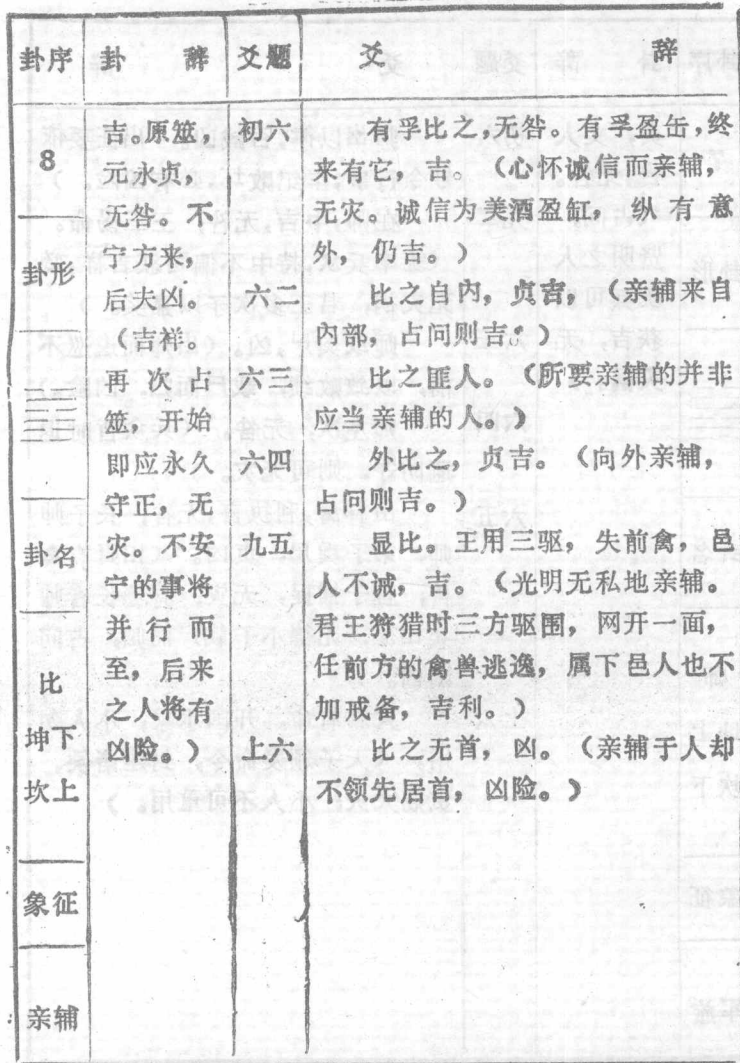 卦序 卦 辞 爻题 爻 辞
8
卦形
卦名
比
坤下
坎上
象征
亲辅
吉。原筮,
元永贞,
无咎。不
宁方来,
后夫凶。
(吉祥。
再次占
筮,开始
即应永久
守正,无
灾。不安
宁的事将
并行而
至,后来
之人将有
凶险。)
初六 有孚比之,无咎。有孚盈缶,终
来有它,吉。(心怀诚信而亲辅,
无灾。诚信为美酒盈缸,纵有意
外,仍吉。)
六二 比之自内,贞吉,(亲辅来自
内部,占问则吉。)
六三 比之匪人。(所要亲辅的并非
应当亲辅的人。)
六四 外比之,贞吉。(向外亲辅,
占问则吉。)
九五 显比。王用三驱,失前禽,邑
人不诫,吉。(光明无私地亲辅。
君王狩猎时三方驱围,网开一面,
任前方的禽兽逃逸,属下邑人也不
加戒备,吉利。)
上六 比之无首,凶。(亲辅于人却
不领先居首,凶险。)